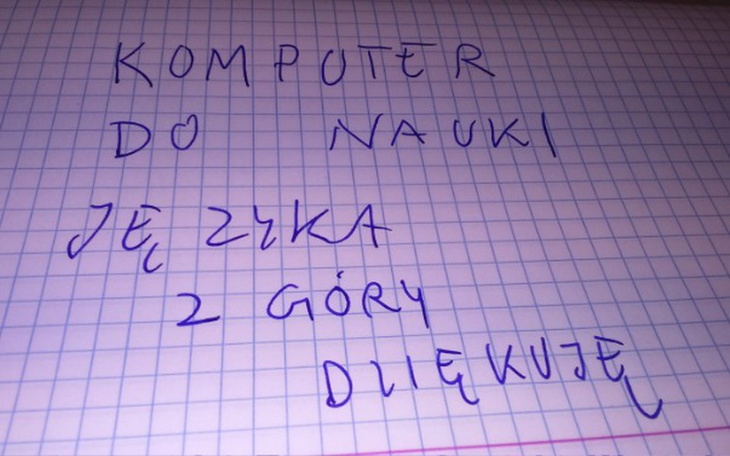 KOMPUTER
DO NAUKI
JĘZYKA
Z GÓRY
DZIĘKUJĘ